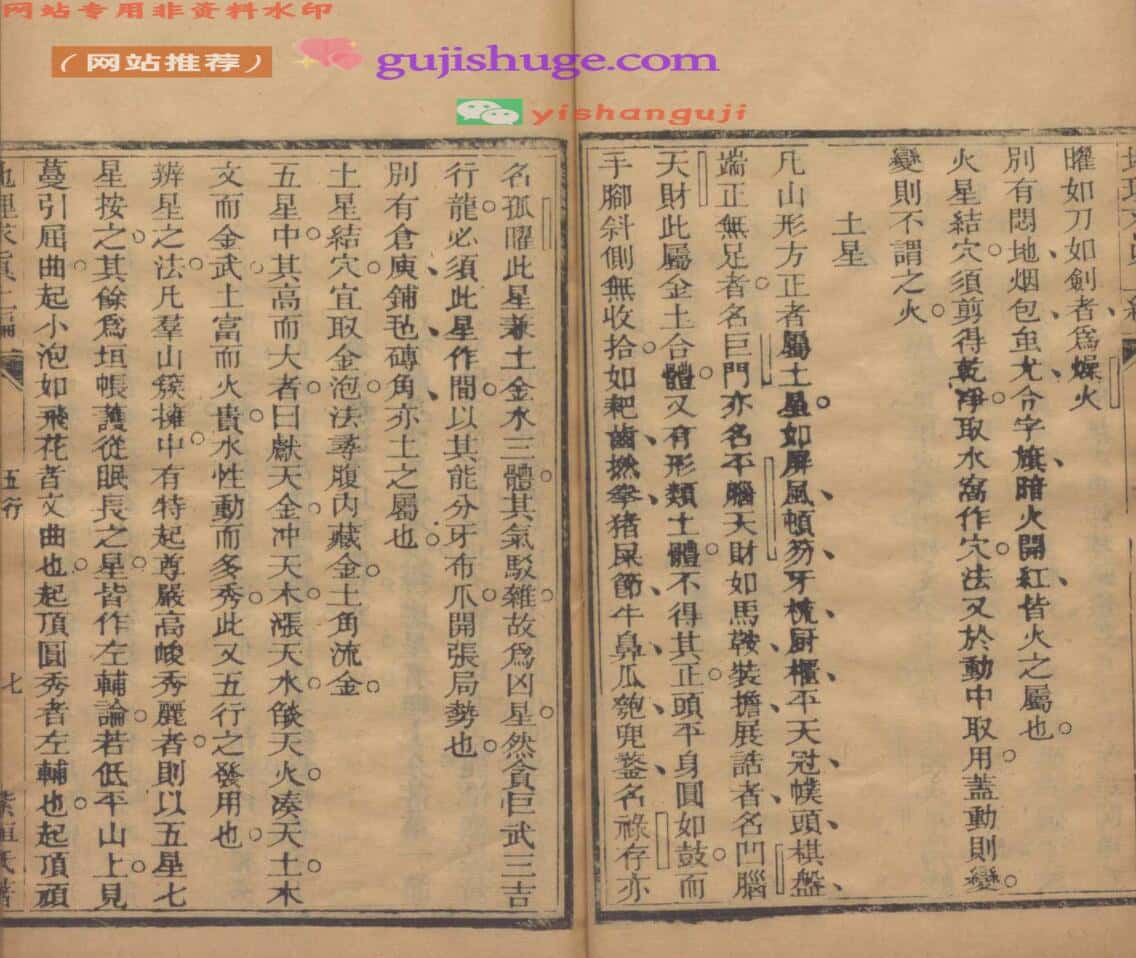 网站专用非资料水印
(网站推荐)
gujishuge.com
yishanguji
曜如刀如劍者爲燥火
別有悶地烟包虽尤合字旗暗火開紅皆火之屬也
火星結穴須剪得乾净取水窩作穴法又於動中取用蓋動則變
變則不謂之火
土星
凡山形方正者屬土星如屏風頓笏牙梳厨櫃平天冠幞頭棋盤
端正無足者名巨門亦名平腦天財如馬鞍裝擔展誥者名凹腦
天財此屬金土合體又有形類土體不得其正頭平身圓如鼓而
手腳斜側無收拾如耙齒撚拳猪屎節牛鼻瓜匏兜鍪名祿存亦
名孤曜此星兼土金水三體其氣駁雜故爲凶星然貪巨武三吉
行龍必須此星作間以其能分牙布爪開張局勢也
別有倉庾鋪毡磚角亦土之屬也
土星結穴宜取金泡法尋腹内藏金土角流金
五星中其高而大者曰獻天金冲天木漲天水燄天火凑天土木
文而金武土富而火貴水性動而多秀此又五行之發用也
辨星之法凡羣山簇擁中有特起尊嚴高峻秀麗者則以五星七
星按之其餘爲垣帳護從眠長之星皆作左輔論若低平山上見
蔓引屈曲起小泡如飛花者文曲也起頂圓秀者左輔也起頂頑
五行
七